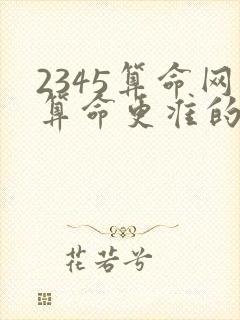 2345算命网
算命更准的
花若兮